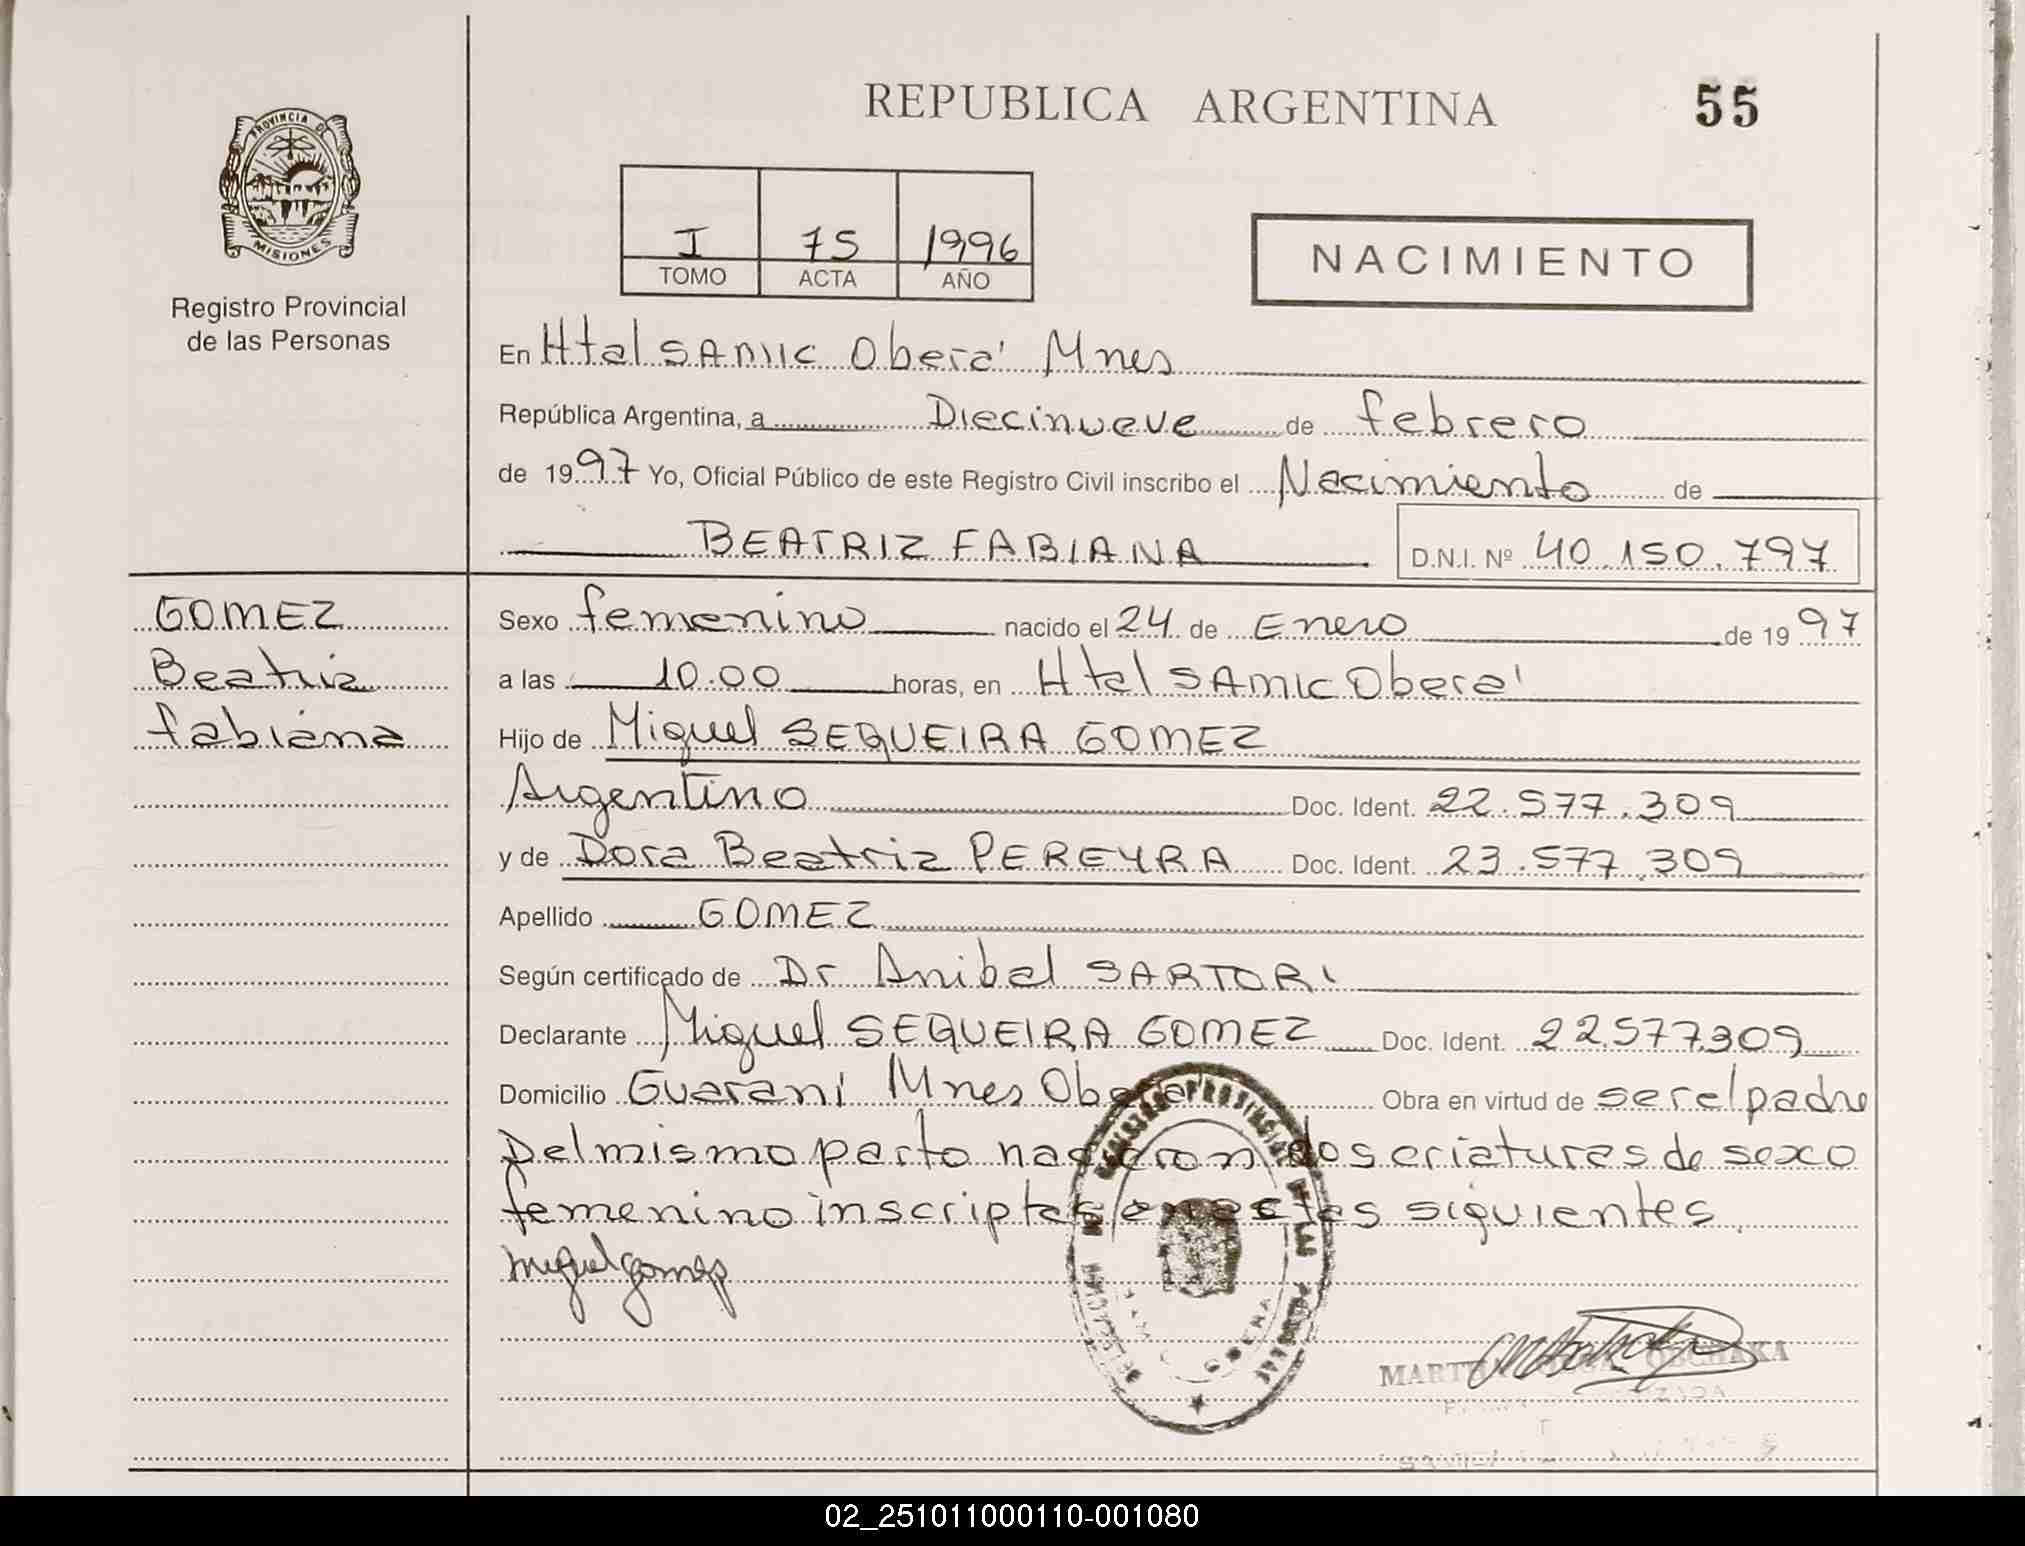 REPUBLICA ARGENTINA
55
PROVINCIA D
MISIONES
Registro Provincial
de las Personas
I 75 1996
TOMO ACTA AÑO
NACIMIENTO
En Htal SAMIC Oberá Mnes
República Argentina, a Diecinueve de febrero
de 1997 Yo, Oficial Público de este Registro Civil inscribo el Nacimiento de
BEATRIZ FABIANA D.N.I. Nº 40.150.797
GOMEZ
Beatriz
fabiana
Sexo femenino nacido el 24 de Enero de 1997
a las 10.00 horas, en Htal SAMIC Oberá
Hijo de Miguel SEQUEIRA GOMEZ
Argentino Doc. Ident. 22.577.309
y de Dora Beatriz PEREYRA Doc. Ident. 23.577.309
Apellido GOMEZ
Según certificado de Dr Anibal SARTORI
Declarante Miguel SEQUEIRA GOMEZ Doc. Ident. 22577309
Domicilio Guaraní Mnes Oberá Obra en virtud de ser el padre
Del mismo parto nacieron dos criaturas de sexo
femenino inscriptas en actas siguientes.
Miguel gomez
REGISTRO PROVINCIAL DE LAS PERSONAS
MART OSCHAKA
02_251011000110-001080